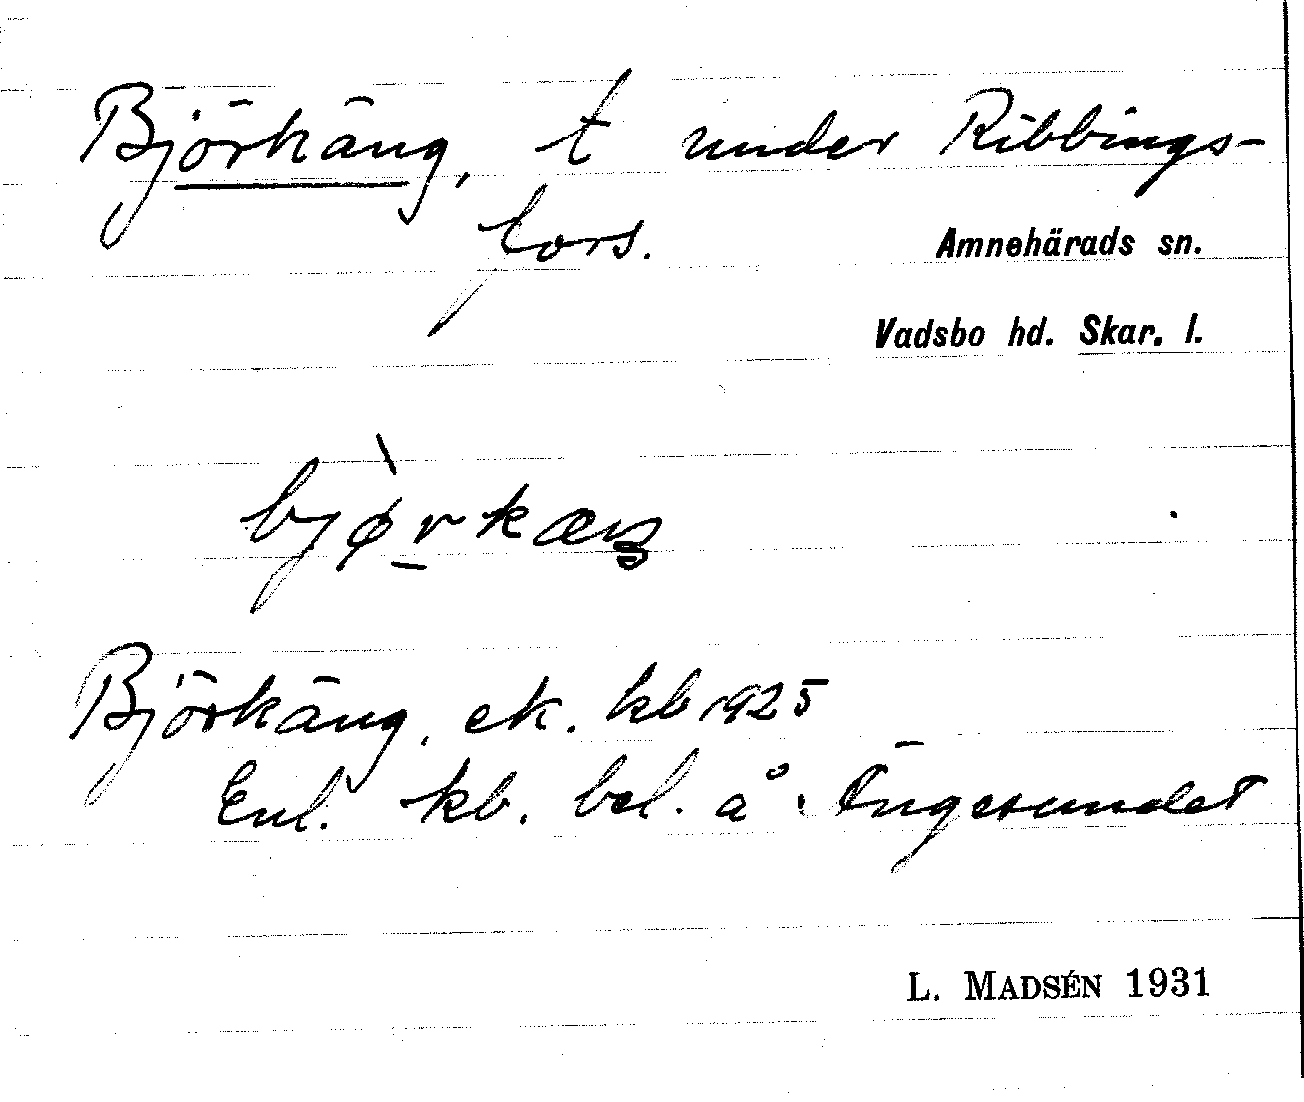 Björkäng, t under Ribbings-
fors.
Amnehärads sn.
Vadsbo hd. Skar. l.
bjø̀rkæŋ
Björkäng, ek. kb 1925
Enl. kb. bel. å Ängesundet
L. MADSÉN 1931